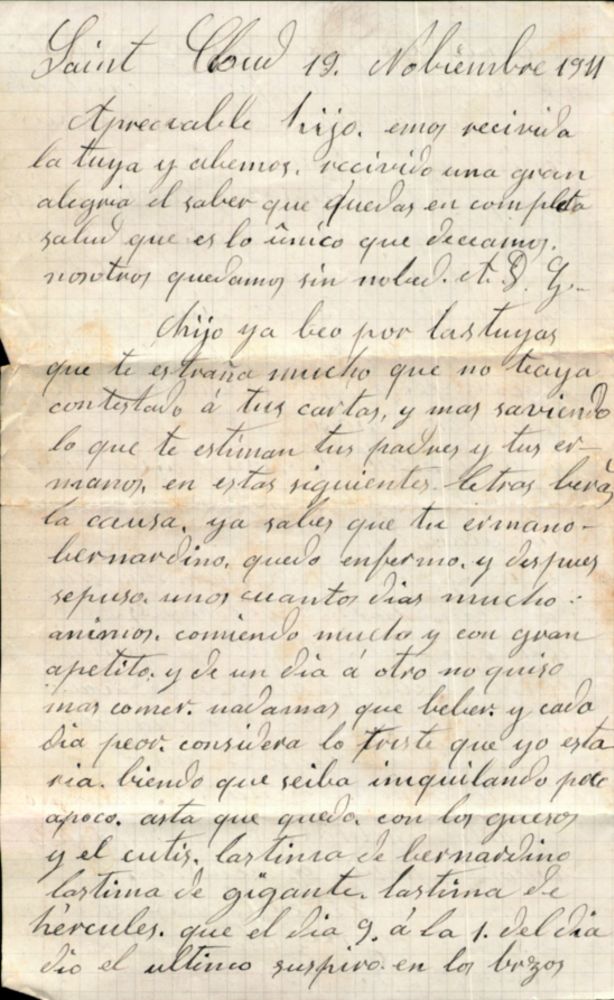 Saint Cloud 19. Nobiembre 1911
Apreciable hijo. emos recivida
la tuya y abemos. recivido una gran
alegria el saber que quedas en completa
salud que es lo único que deceamos.
nosotros quedamos sin nobed. A. D. G.
hijo ya beo por las tuyas
que te estraña mucho que no teaya
contestado á tus cartas, y mas saviendo
lo que te estiman tus padres y tus er-
manos, en estas siguientes letras berás
la causa, ya sabes que tu ermano-
bernardino. quedo enfermo. y despues
sepuso. unos cuantos dias mucho:
animos. comiendo mucto y con gran
apetito. y de un dia á otro no quiso
mas comer. nadamas que beber. y cada
dia peor. considera lo triste que yo esta
ria. biendo que seiba iniquilando poco
apoco. asta que quedo. con los guesos
y el cutis. lastima de bernardino
lastima de gigante. lastima de
hércules. que el dia 9. á la 1. del dia
dio el ultimo suspiro. en los brazos